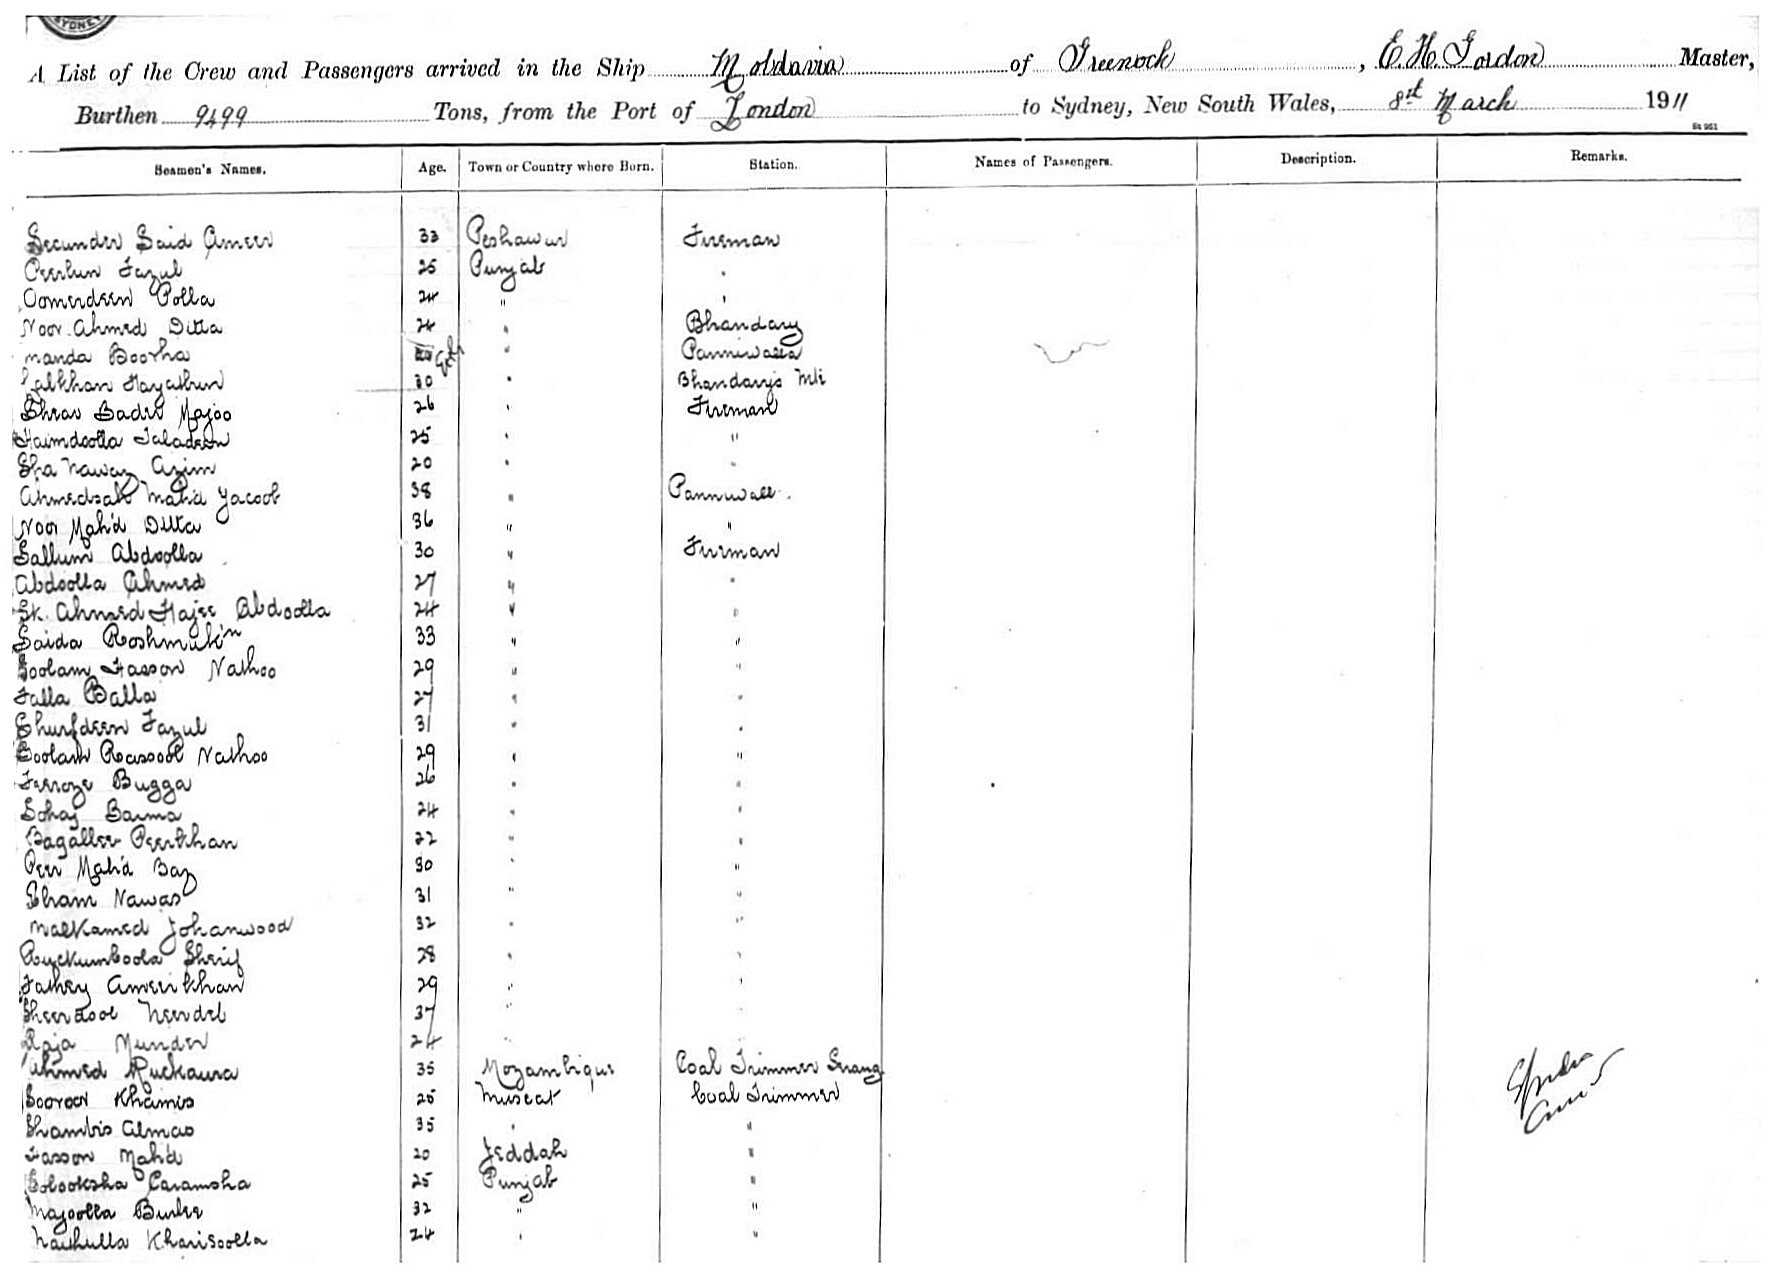 SYDNEY
A List of the Crew and Passengers arrived in the Ship Moldavia of Greenock, E H Gordon Master,
Burthen 9499 Tons, from the Port of London to Sydney, New South Wales, 8st March 1911
St 951
Seamen's Names. Age. Town or Country where Born. Station. Names of Passengers. Description. Remarks.
Secunder Said Ameer 33 Peshawur Fireman
Peerbun Fazul 25 Punjab
Oomerdeen Polla 24 "
Noor Ahmed Ditta 24 " Bhandary
nanda Boorha " Panniwalla
Lalkhan Hayathun 30 " Bhandary's Mte
Sheras Badri Majoo 26 " Fireman
Haimdoolla Jaladeen 25 " "
Sha Nawaz Azim 20 " "
Ahmedsah Mah'd Yacoob 38 " Panniwall
Noor Mah'd Ditta 36 " "
Sallum Abdoolla 30 " Fireman
Abdoolla Ahmed 27 " "
Sk. Ahmed Hajee Abdoolla 24 " "
Saida Roshmubin 33 " "
Goolam Hasson Nathoo 29 " "
Falla Balla 27 " "
Shurfdeen Fazul 31 " "
Goolam Rassool Nathoo 29 " "
Feroze Bugga 26 " "
Sohaj Barma 24 " "
Bagallee Peerkhan 22 " "
Peer Mah'd Baz 30 " "
Sham Nawas 31 " "
Malkamed Johanwood 32 " "
Ruckumboola Sherif 28 " "
Fathey Ameerkhan 29 " "
Sheerdool Neerdel 37 " "
Raja Munder 24 " "
Ahmed Ruckaura 35 Mozambique Coal Trimmer Serang
Sooroor Khamis 25 Muscat Coal Trimmer
Shambis Almas 35 " "
Hasson Mah'd 20 Jeddah "
Golooksha Caramsha 25 Punjab "
Majoolla Burkee 32 " "
Nathulla Kharisoolla 24 " "